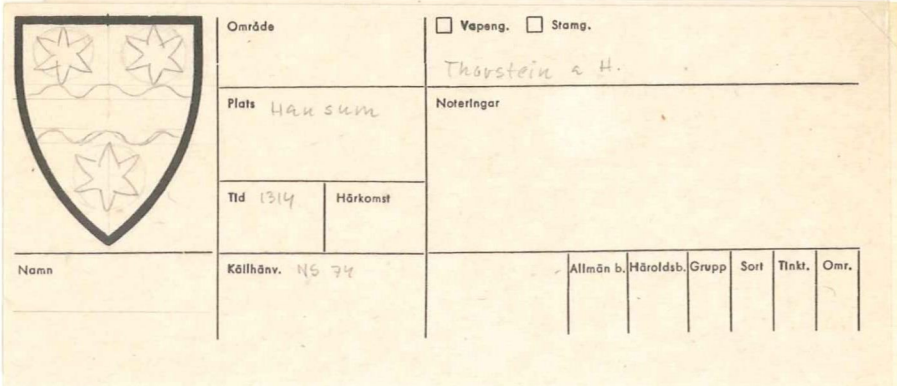 Område
Vapeng. Stamg.
Thorstein a H.
Plats Hansum
Noteringar
Tid 1314
Härkomst
Namn
Källhänv. NS 74
Allmän b. Häroldsb. Grupp Sort Tinkt. Omr.